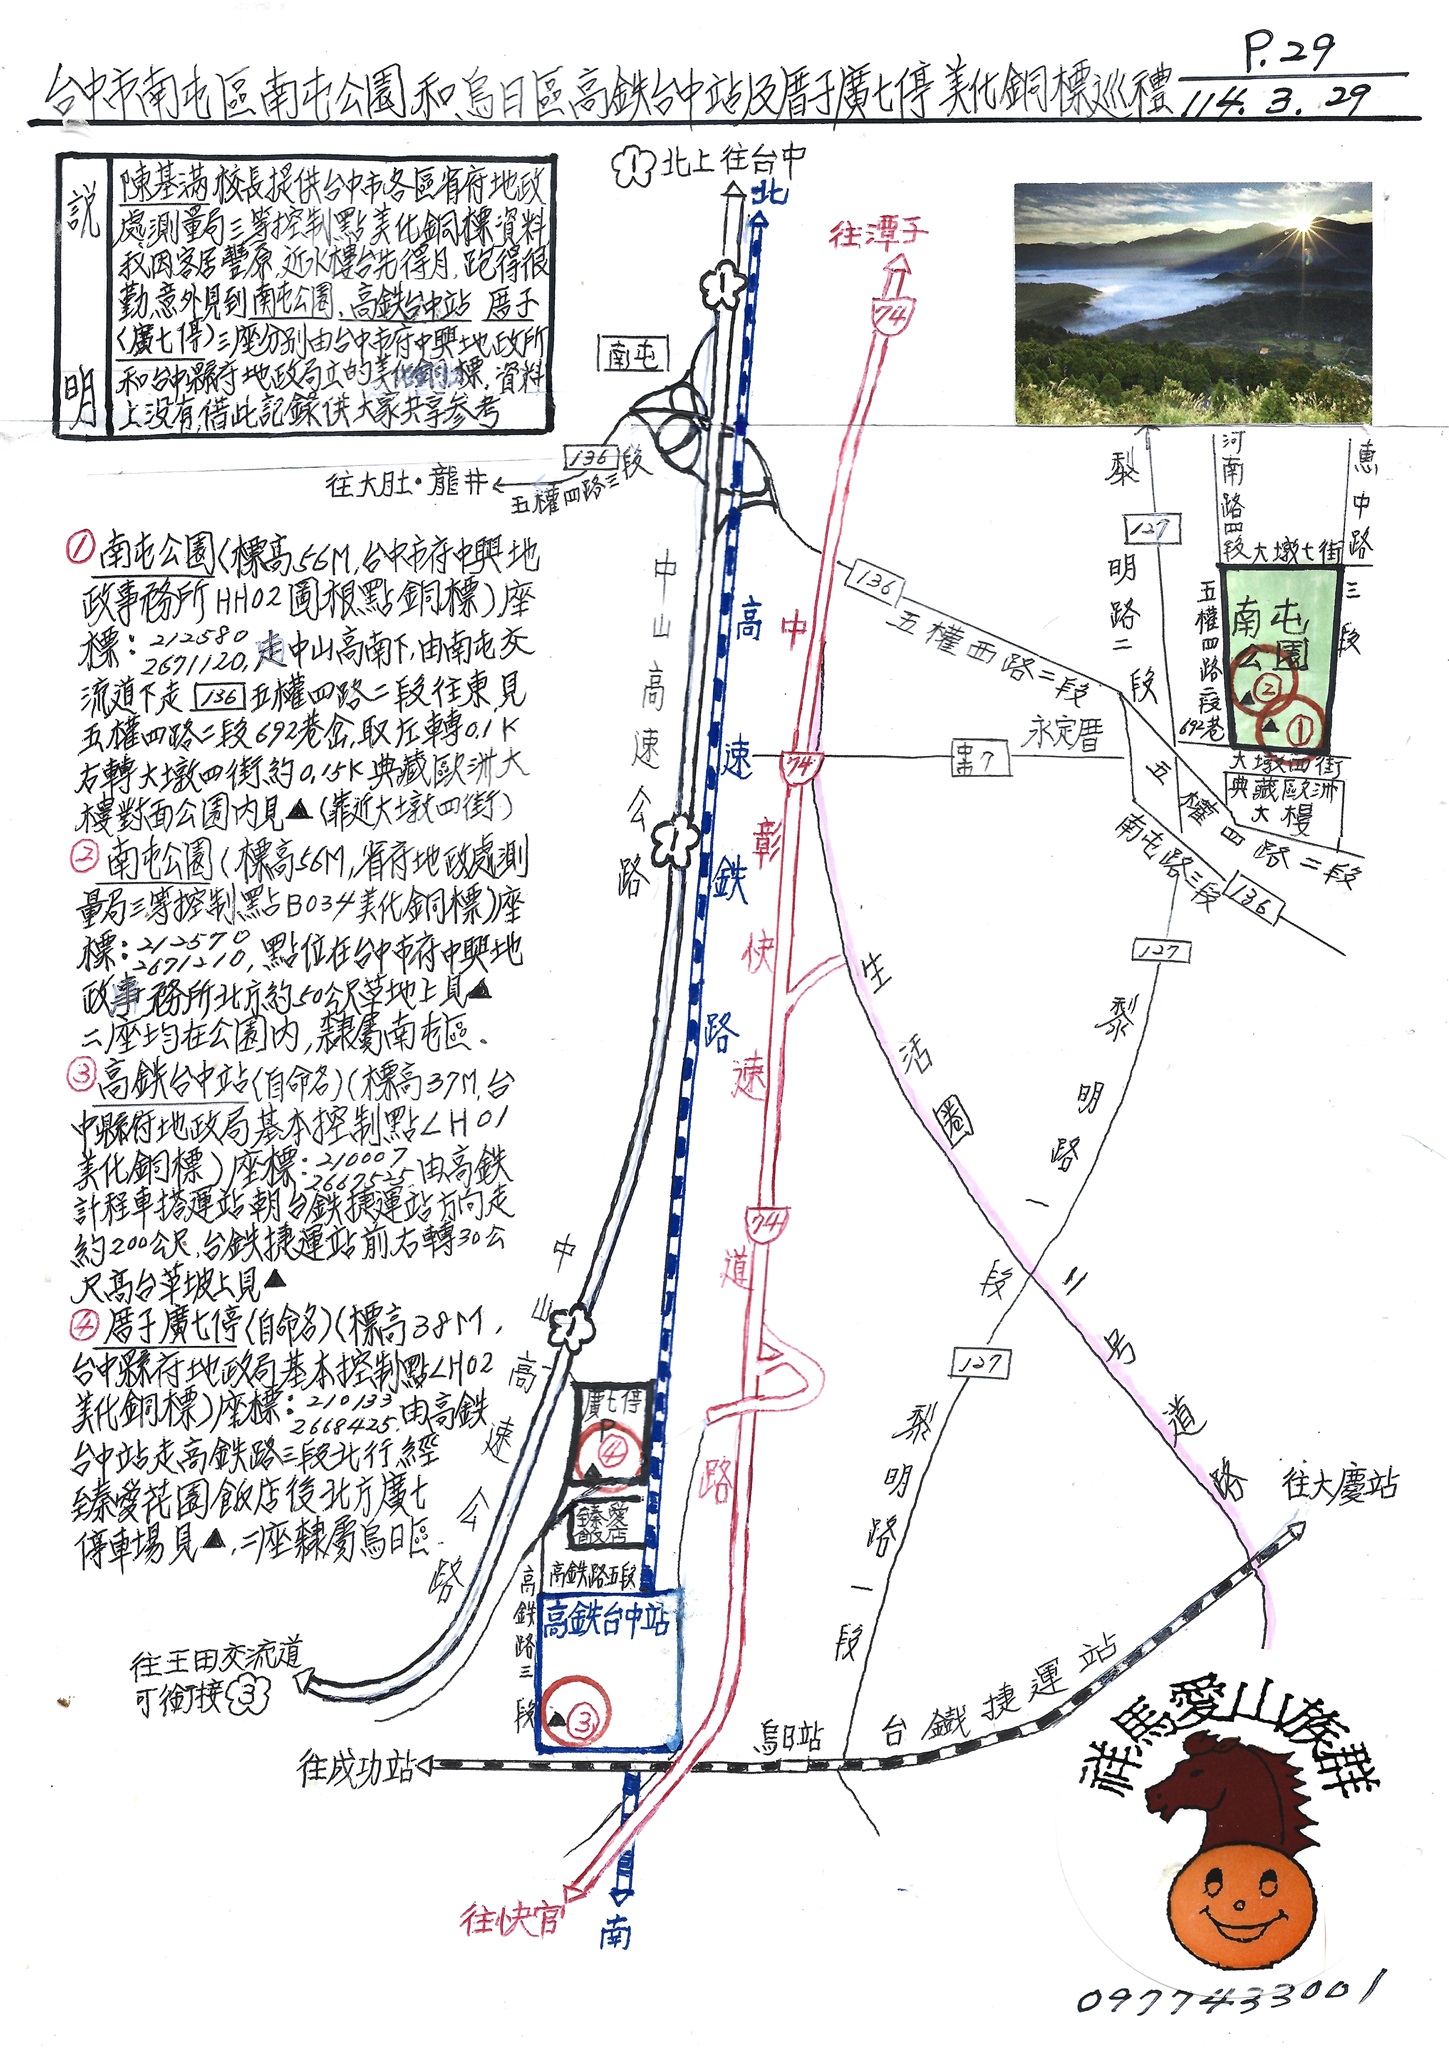 P.29
台中市南屯區南屯公園和烏日區高鉄台中站及厝子廣七停美化銅標巡禮
114.3.29
說明
陳基滿校長提供台中市各區省府地政
處測量局三等控制點美化銅標資料
我因客居豐原,近水樓台先得月,跑得很
勤,意外見到南屯公園、高鉄台中站 厝子
(廣七停)三座分別由台中市府中興地政所
和台中縣府地政局立的美化銅標,資料
上沒有,借此記錄供大家共享參考
① 南屯公園(標高56M,台中市府中興地
政事務所HH02圖根點銅標)座
標:212580
2671120,走中山高南下,由南屯交
流道下走 136 五權四路二段往東,見
五權四路二段692巷岔,取左轉0.1K
右轉大墩四街約0.15K典藏歐洲大
樓對面公園內見▲(靠近大墩四街)
② 南屯公園(標高56M,省府地政處測
量局三等控制點B034美化銅標)座
標:212570
2671210,點位在台中市府中興地
政事務所北方約50公尺草地上見▲
二座均在公園內,隸屬南屯區.
③ 高鉄台中站(自命名)(標高37M,台
中縣府地政局基本控制點LH01
美化銅標)座標:210007
2667525,由高鉄
計程車搭運站朝台鉄捷運站方向走
約200公尺,台鉄捷運站前右轉30公
尺高台草坡上見▲
④ 厝子廣七停(自命名)(標高38M,
台中縣府地政局基本控制點LH02
美化銅標)座標:210133
2668425,由高鉄
台中站走高鉄路三段北行,經
臻愛花園飯店後北方廣七
停車場見▲,二座隸屬烏日區.
1 北上往台中
北
往潭子
74
1
南屯
136
往大肚·龍井
五權四路三段
中山高速公路
高速鉄路
中彰快速道路
136
五權西路二段
74
中7
永定厝
1
黎明路二段
127
河南路四段
惠中路三段
大墩七街
五權四路二段
692巷
南屯公園
②
①
大墩四街
典藏歐洲
大樓
五權四路二段
南屯路三段
136
127
黎明路一段
生活圈二号道路
74
127
黎明路一段
1
中山高速公路
廣七停
④
臻愛
飯店
高鉄路五段
高鉄路三段
高鉄台中站
③
往王田交流道
可銜接 3
往成功站
烏日站
台鐵捷運站
往大慶站
往快官
南
祥馬愛山族群
0977433001